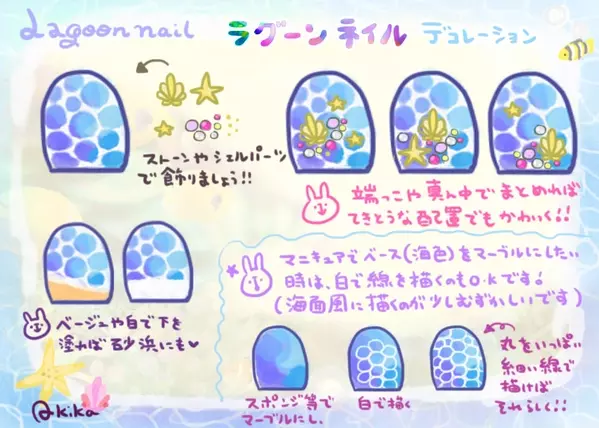 Lagoon nail ラグーン ネイル デコレーション
ストーンや シェルパーツ
で 飾りましょう!!
端っこや 真ん中で まとめれば
てきとうな 配置でも かわいく!!
ベージュや白で下を
塗れば 砂浜にも♥
マニキュアで ベース(海色)を マーブルにしたい
時は、白で 線を 描くのも O.K です!
(海面風に 描くのが 少しむずかしいです)
スポンジ等で
マーブルにし、
白で描く
丸をいっぱい
細い線で
描けば
それらしく!!
@kika